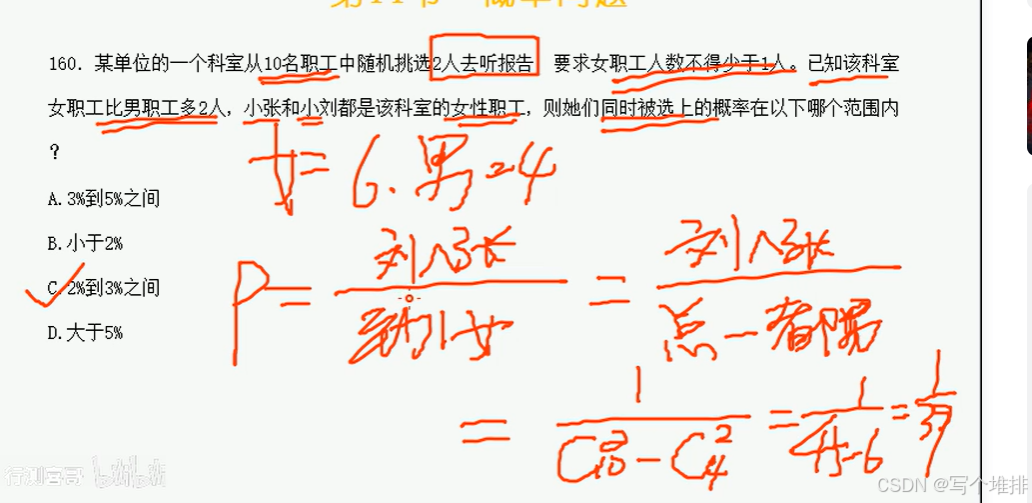 160. 某单位的一个科室从10名职工中随机挑选2人去听报告 要求女职工人数不得少于1人。已知该科室
女职工比男职工多2人，小张和小刘都是该科室的女性职工，则她们同时被选上的概率在以下哪个范围内
？
女= 6. 男=4
A.3%到5%之间
B.小于2%
C.2%到3%之间
D.大于5%
P= 刘∧张 / 至少1女 = 刘∧张 / 总一都男
= 1/(C₁₀²-C₄²) = 1/(45-6) = 1/39
行测喜哥 bilibili
CSDN @写个堆排